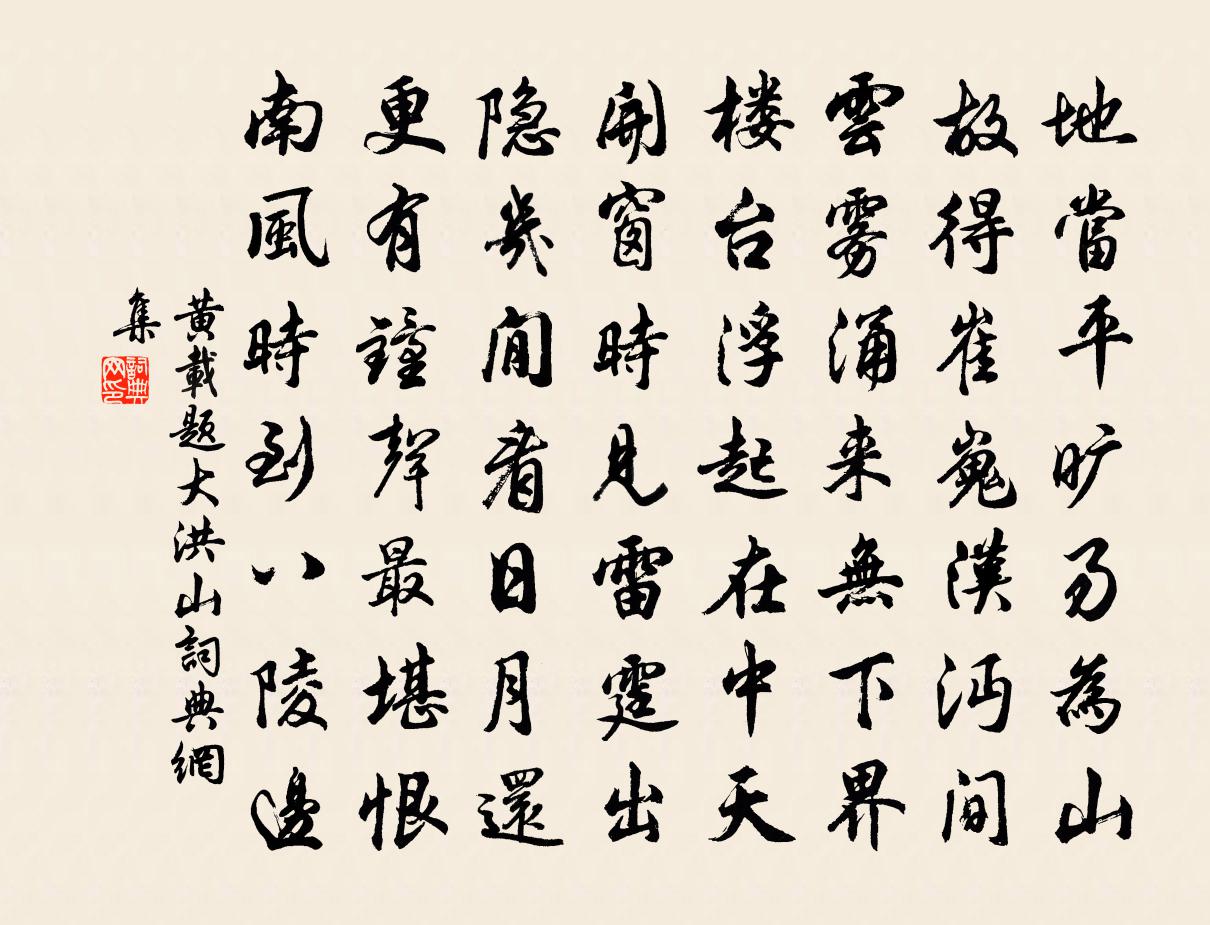 地當平旷易為山
故得崔嵬漢沔間
雲雾涌来無下界
楼台浮起在中天
開窗時見雷霆出
隐几閒看日月還
更有鐘聲最堪恨
南風時到八陵邊
黄載题大洪山詞典網
集
詞典網印